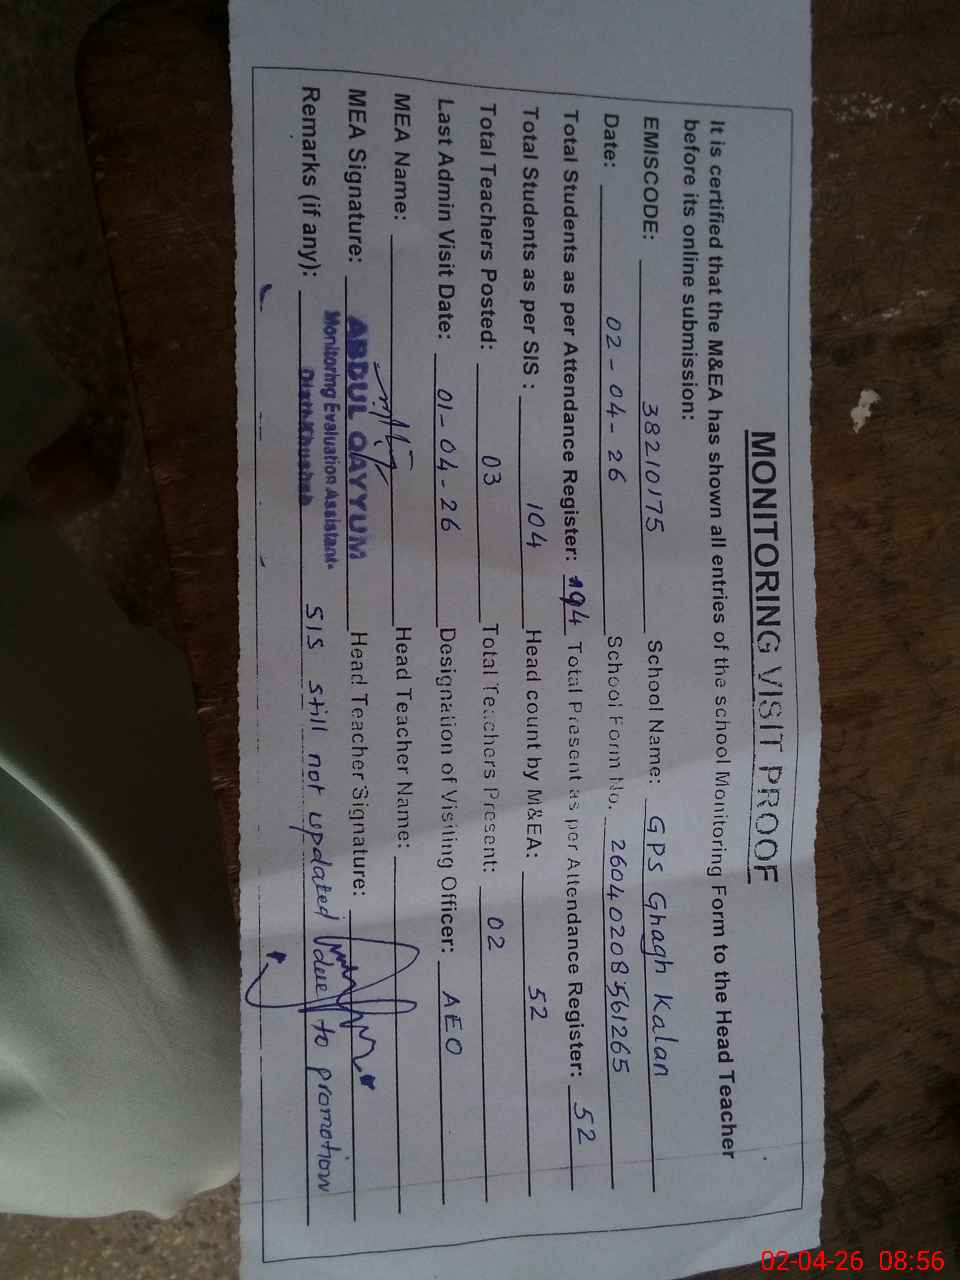 MONITORING VISIT PROOF
It is certified that the M&EA has shown all entries of the school Monitoring Form to the Head Teacher
before its online submission:
EMISCODE: 38210175 School Name: GPS Ghagh Kalan
Date: 02-04-26 School Form No. 26040208561265
Total Students as per Attendance Register: 194 Total Present as per Attendance Register: 52
Total Students as per SIS: 104 Head count by M&EA: 52
Total Teachers Posted: 03 Total Teachers Present: 02
Last Admin Visit Date: 01-04-26 Designation of Visiting Officer: AEO
MEA Name: Head Teacher Name:
MEA Signature: ABDUL QAYYUM Head Teacher Signature:
Monitoring Evaluation Assistant
Remarks (if any): Distt: Khushab SIS still not updated due to promotion
02-04-26 08:56